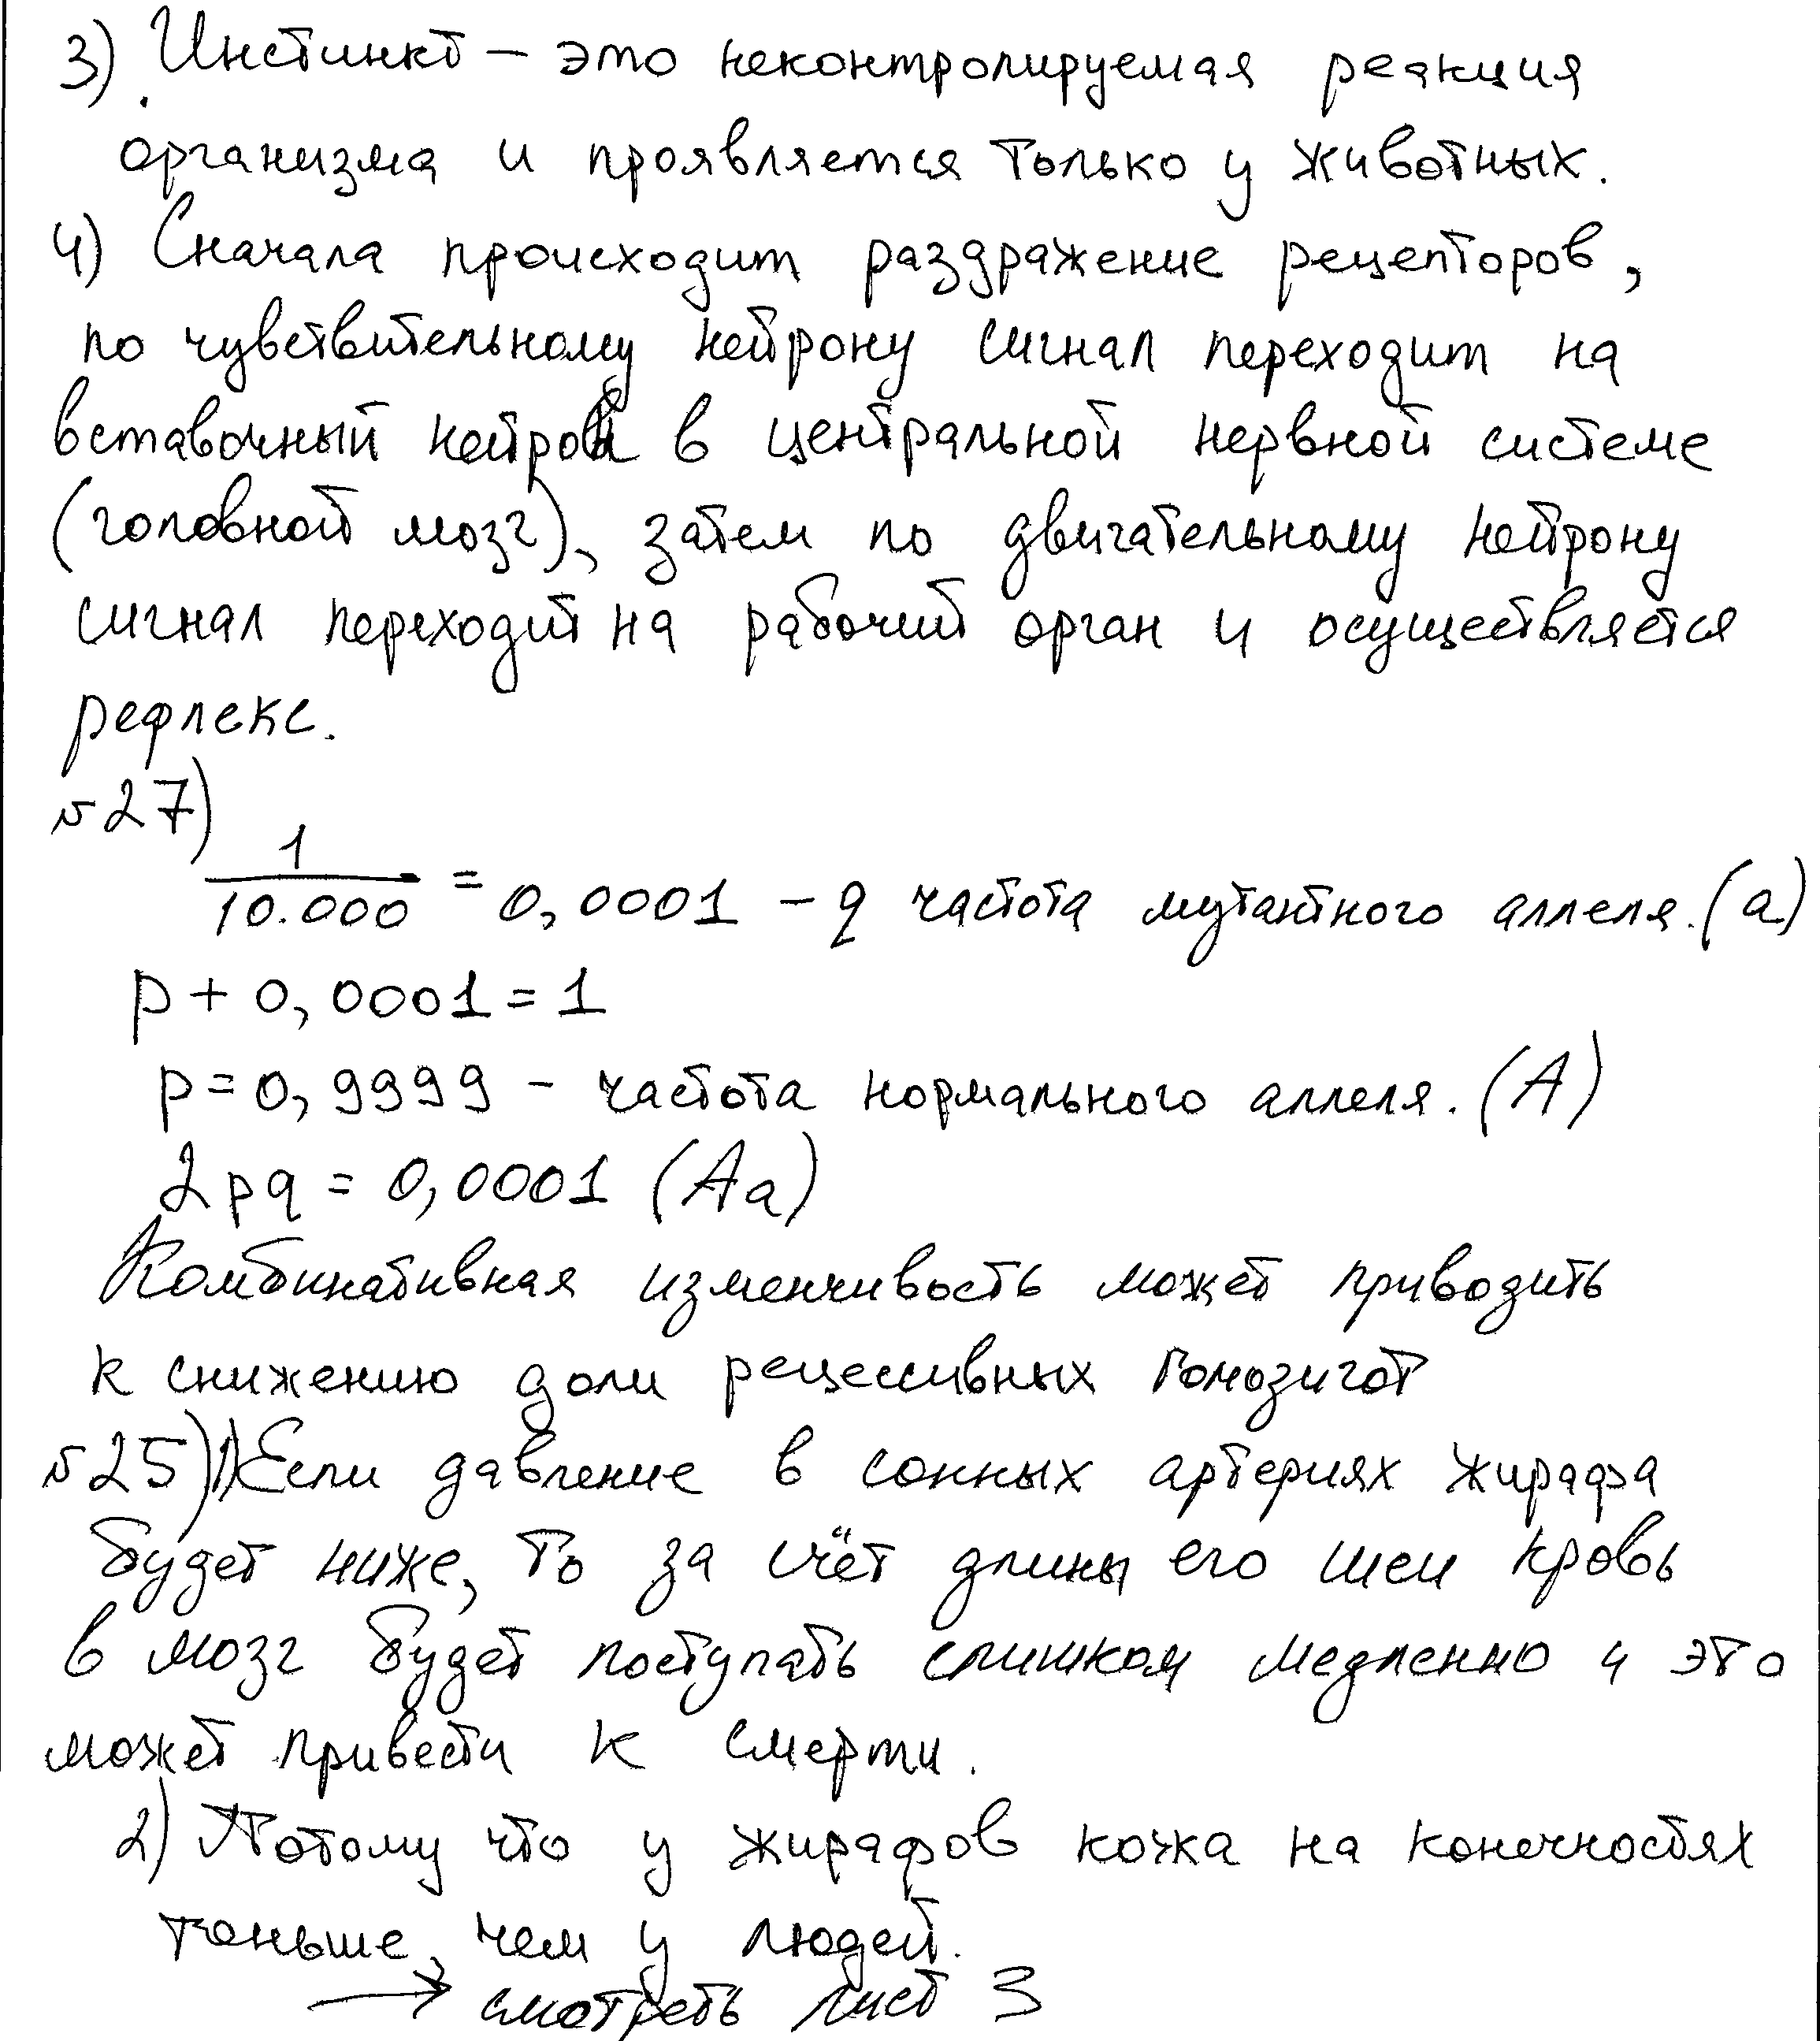 3) Инстинкт – это неконтролируемая реакция
организма и проявляется только у животных.
4) Сначала происходит раздражение рецепторов,
по чувствительному нейрону сигнал переходит на
вставочный нейрон в центральной нервной системе
(головной мозг), затем по двигательному нейрону
сигнал переходит на рабочий орган и осуществляется
рефлекс.
№27)
1/10.000 = 0,0001 – q частота мутантного аллеля. (a)
p + 0,0001 = 1
p = 0,9999 – частота нормального аллеля. (A)
2pq = 0,0001 (Aa)
Комбинативная изменчивость может приводить
к снижению доли рецессивных гомозигот
№25) 1) Если давление в сонных артериях жирафа
будет ниже, то за счёт длины его шеи кровь
в мозг будет поступать слишком медленно и это
может привести к смерти.
2) Потому что у жирафов кожа на конечностях
тоньше, чем у людей.
→ смотреть лист 3